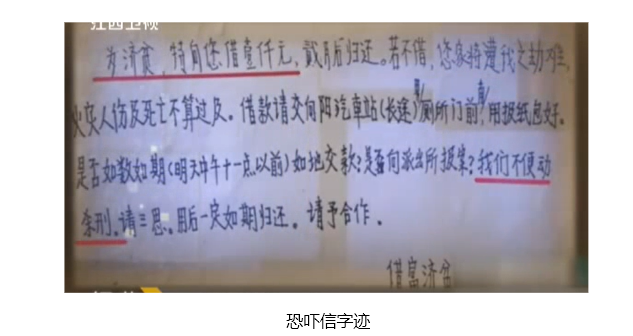 江西卫视
为济贫，特向您借壹仟元，贰月后归还。若不借，您家将遭我之劫难，
火灾人伤及死亡不算过及。借款请交向阳汽车站(长途)厕所门前，用报纸包好。
男 直
是否如数如期(明天中午十一点以前)如地交款？是否向派出所报案？我们不便动
条刑。请三思。用后一定如期归还。请予合作。
借富济贫
恐吓信字迹